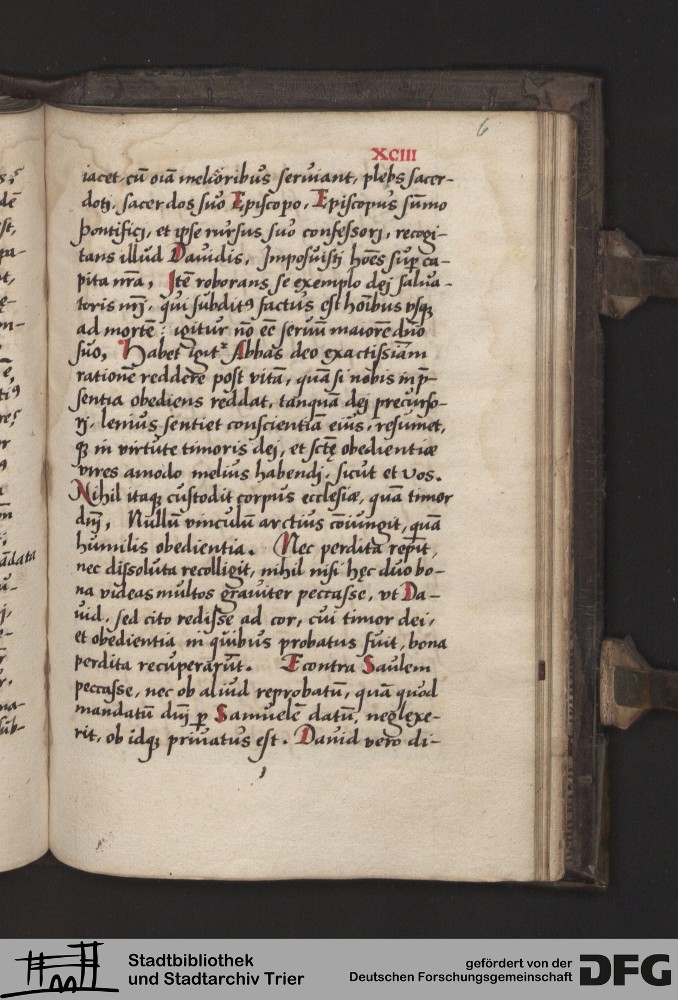 6
XCIII
iacet cū oīa melioribus seruiant, plebs sacer-
dotj, sacerdos suo Episcopo, Episcopus sūmo
pontificj, et ipse rursus suo confessorj, recogi-
tans illud Dauidis, Imposuistj hoēs sup ca-
pita nrā, Itē roborans se exemplo dej salua-
toris nrj, qui subditꝰ factus est hoībus usqꝫ
ad mortē: igitur nō eē seruū maiorē dnō
suo, Habet igit Abbas deo exactissiām
rationē reddere post vitā, quā si nobis in p̄-
sentia obediens reddat, tanquā dej precurso-
rj, lenius sentiet conscientiā eius, resumet,
qꝫ in virtute timoris dej, et sctę obedientiæ
vires amodo melius habendj, sicut et vos.
Nihil itaqꝫ custodit corpus ecclesiæ, quā timor
dnj, Nullū vinculū arctius cōiungit, quā
humilis obedientia. Nec perdita repīt,
nec dissoluta recolligit, nihil nisi hęc duo bo-
na videas multos grauiter peccasse, vt Da-
uid, sed cito redisse ad cor, cui timor dei,
et obedientia in quibus probatus fuit, bona
perdita recuperārūt. Econtra Saulem
peccasse, nec ob aliud reprobatū, quā quod
mandatū dnj p Samuelē datū, neglexe-
rit, ob idqꝫ priuatus est. Dauid vero di-
Stadtbibliothek
und Stadtarchiv Trier
gefördert von der
Deutschen Forschungsgemeinschaft
DFG